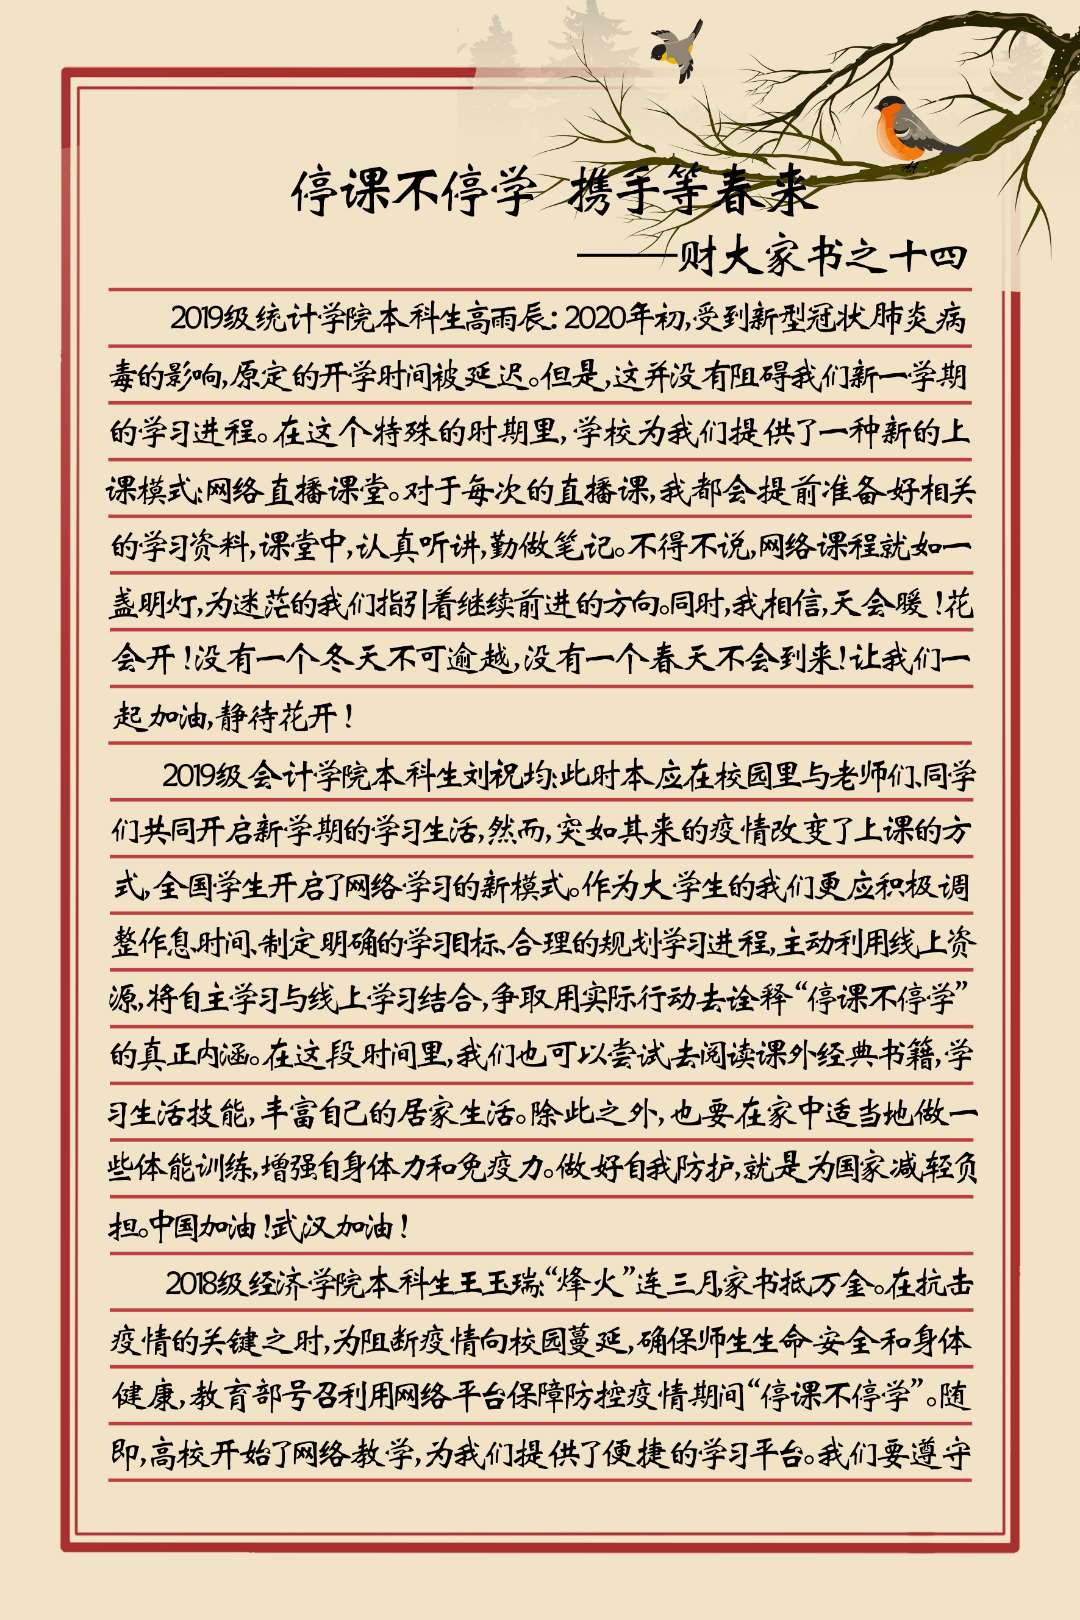 停课不停学 携手等春来
——财大家书之十四
2019级统计学院本科生高雨辰：2020年初,受到新型冠状肺炎病
毒的影响,原定的开学时间被延迟。但是,这并没有阻碍我们新一学期
的学习进程。在这个特殊的时期里,学校为我们提供了一种新的上
课模式:网络直播课堂。对于每次的直播课,我都会提前准备好相关
的学习资料,课堂中,认真听讲,勤做笔记。不得不说,网络课程就如一
盏明灯,为迷茫的我们指引着继续前进的方向。同时,我相信,天会暖！花
会开！没有一个冬天不可逾越,没有一个春天不会到来！让我们一
起加油,静待花开！
2019级会计学院本科生刘祝均:此时本应在校园里与老师们、同学
们共同开启新学期的学习生活,然而,突如其来的疫情改变了上课的方
式,全国学生开启了网络学习的新模式。作为大学生的我们更应积极调
整作息时间、制定明确的学习目标、合理的规划学习进程,主动利用线上资
源,将自主学习与线上学习结合,争取用实际行动去诠释“停课不停学”
的真正内涵。在这段时间里,我们也可以尝试去阅读课外经典书籍,学
习生活技能,丰富自己的居家生活。除此之外,也要在家中适当地做一
些体能训练,增强自身体力和免疫力。做好自我防护,就是为国家减轻负
担。中国加油！武汉加油！
2018级经济学院本科生王玉瑞:“烽火”连三月,家书抵万金。在抗击
疫情的关键之时,为阻断疫情向校园蔓延,确保师生生命安全和身体
健康,教育部号召利用网络平台保障防控疫情期间“停课不停学”。随
即,高校开始了网络教学,为我们提供了便捷的学习平台。我们要遵守